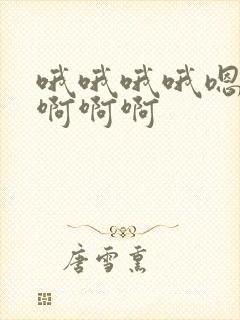 哦哦哦哦嗯
啊啊啊
唐雪熏